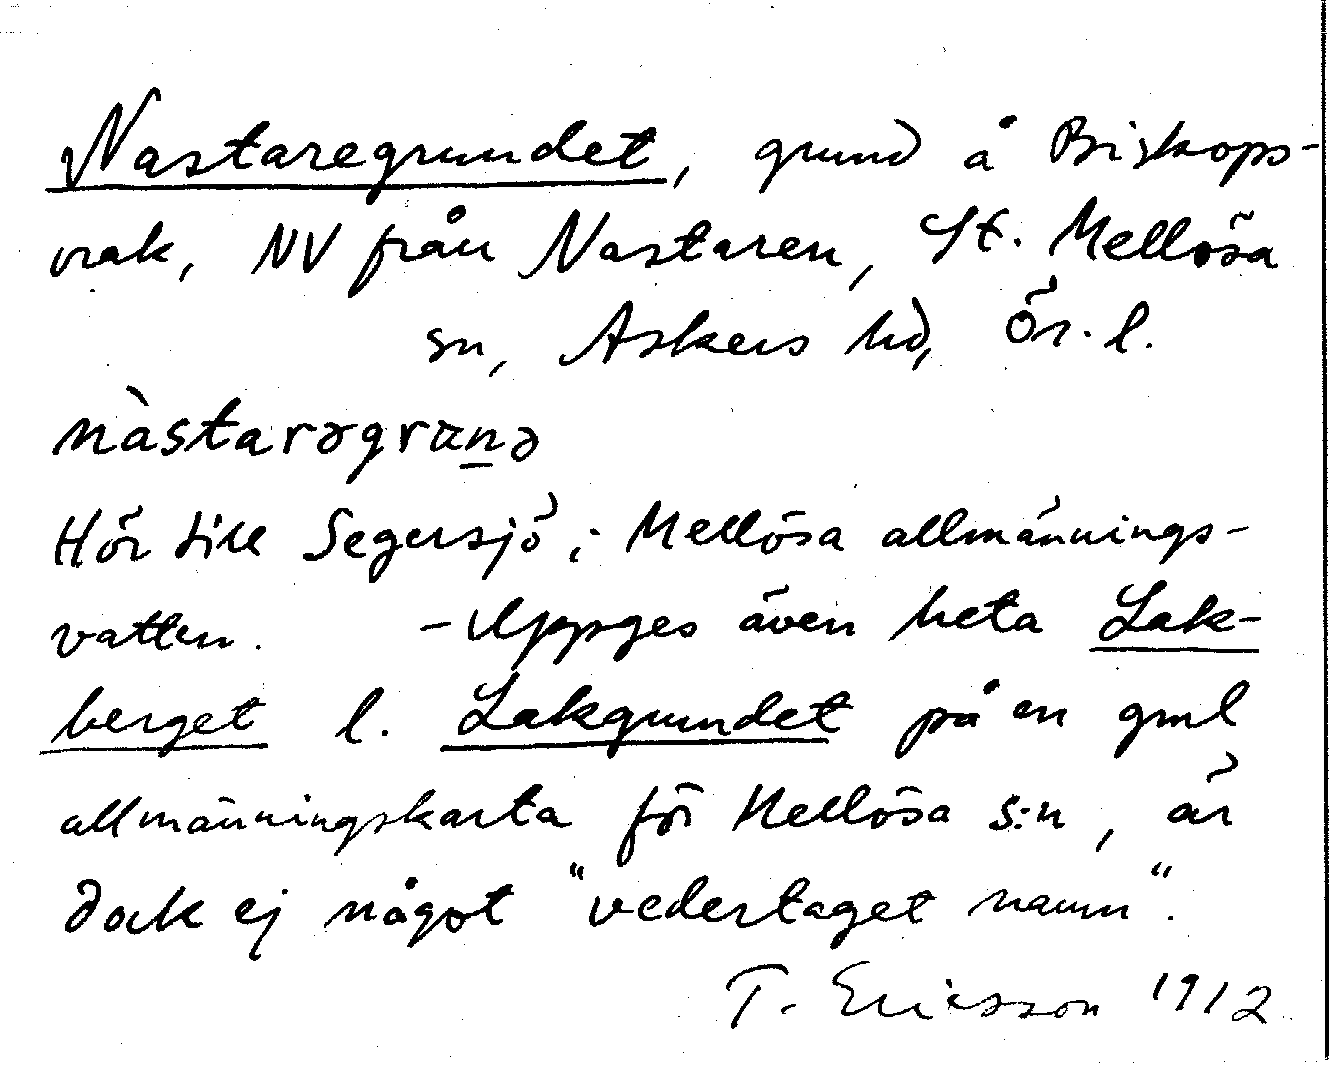 Nastaregrundet, grund å Biskops-
vrak, NV från Nastaren, St. Mellösa
sn, Askers hd, Ör. l.
nàstarəgrunə
Hör till Segersjö; Mellösa allmännings-
vatten. - Uppges även heta Lak-
berget l. Lakgrundet på en gml
allmänningskarta för Mellösa s:n, är
dock ej något "vedertaget namn".
T. Ericsson 1912